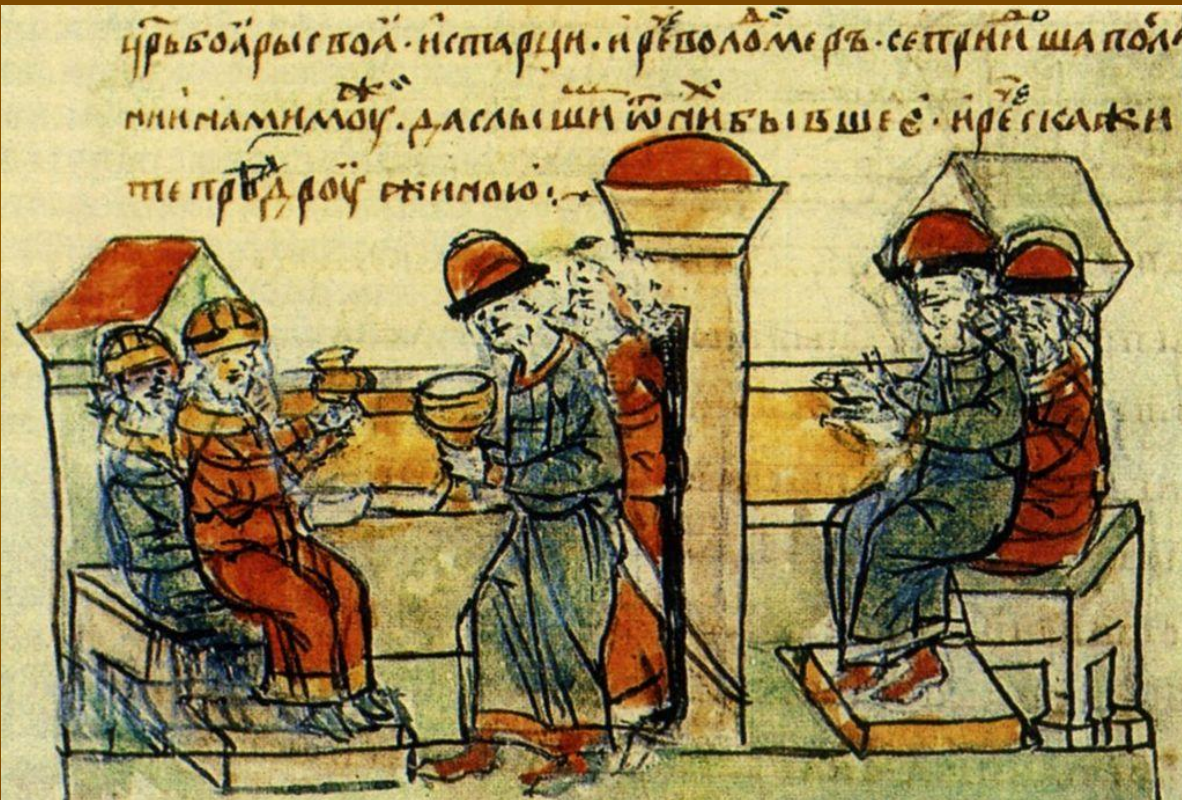 црь боѧры своѧ · и старци · и реⷱ волоⷣмеръ · се прииⷣша поⷭл
нии нами моуⷤ · да слышиⷨ ѿ ниⷯ бывшее · и реⷱ скажи
те преⷣ дроужиною :~